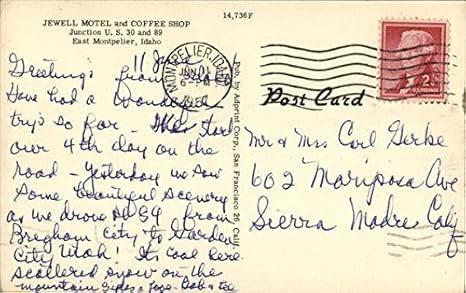 14,736F
JEWELL MOTEL and COFFEE SHOP
Junction U.S. 30 and 89
East Montpelier, Idaho
11 June
Greetings from Idaho
Have had a wonderful
trip so far - this start
our 4th day on the
road - yesterday we saw
some beautiful scenery
as we drove on 89 from
Brigham City to Garden
City Utah! Its cool here
scattered snow on the
mountain sides & tops. Bob & Lee
Pub. by Adprint Corp., San Francisco 26, Calif.
MONTPELIER, IDAHO
JUN 11
6 - PM
2¢
U.S. POSTAGE
Post Card
Mr & Mrs Carl Gerke
602 Mariposa Ave
Sierra Madre Calif